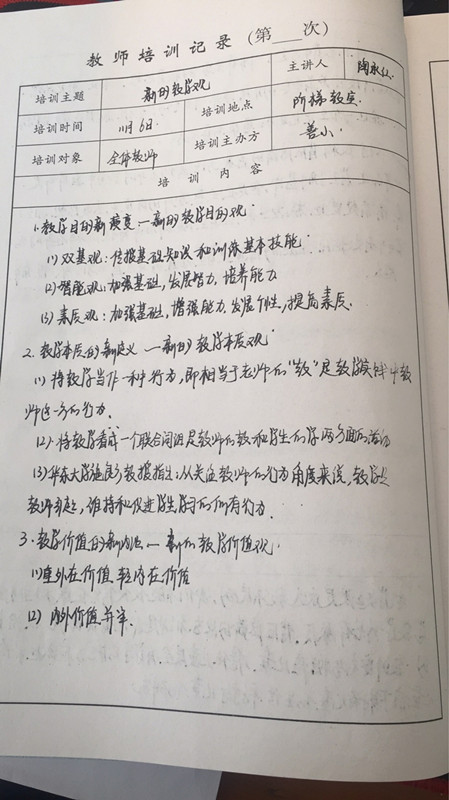 教师培训记录（第___次）
培训主题 新的教学观 主讲人 陶永仙
培训时间 11月6日 培训地点 阶梯教室
培训对象 全体教师 培训主办方 善小
培训内容
1.教学目的新演变——新的教学目的观
(1)双基观：传授基础知识和训练基本技能
(2)智能观：加强基础，发展智力，培养能力
(3)素质观：加强基础，增强能力，发展个性，提高素质。
2.教学本质的新定义——新的教学本质观
(1)将教学当作一种行为，即相当于老师的“教”是教学中教
师这一方的行为.
(2).将教学看成一个联合词组是教师的教和学生的学两方面的活动
(3)华东大学施良方教授指出：从关注教师的行为角度来说，教学是
教师引起，维持和促进学生学习的所有行为.
3.教学价值的新内涵——新的教学价值观.
(1)重外在价值 轻内在价值
(2)内外价值并举.